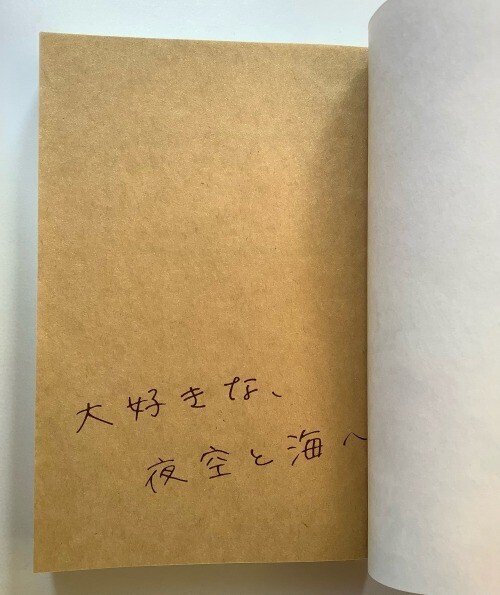 大好きな、
夜空と海へ